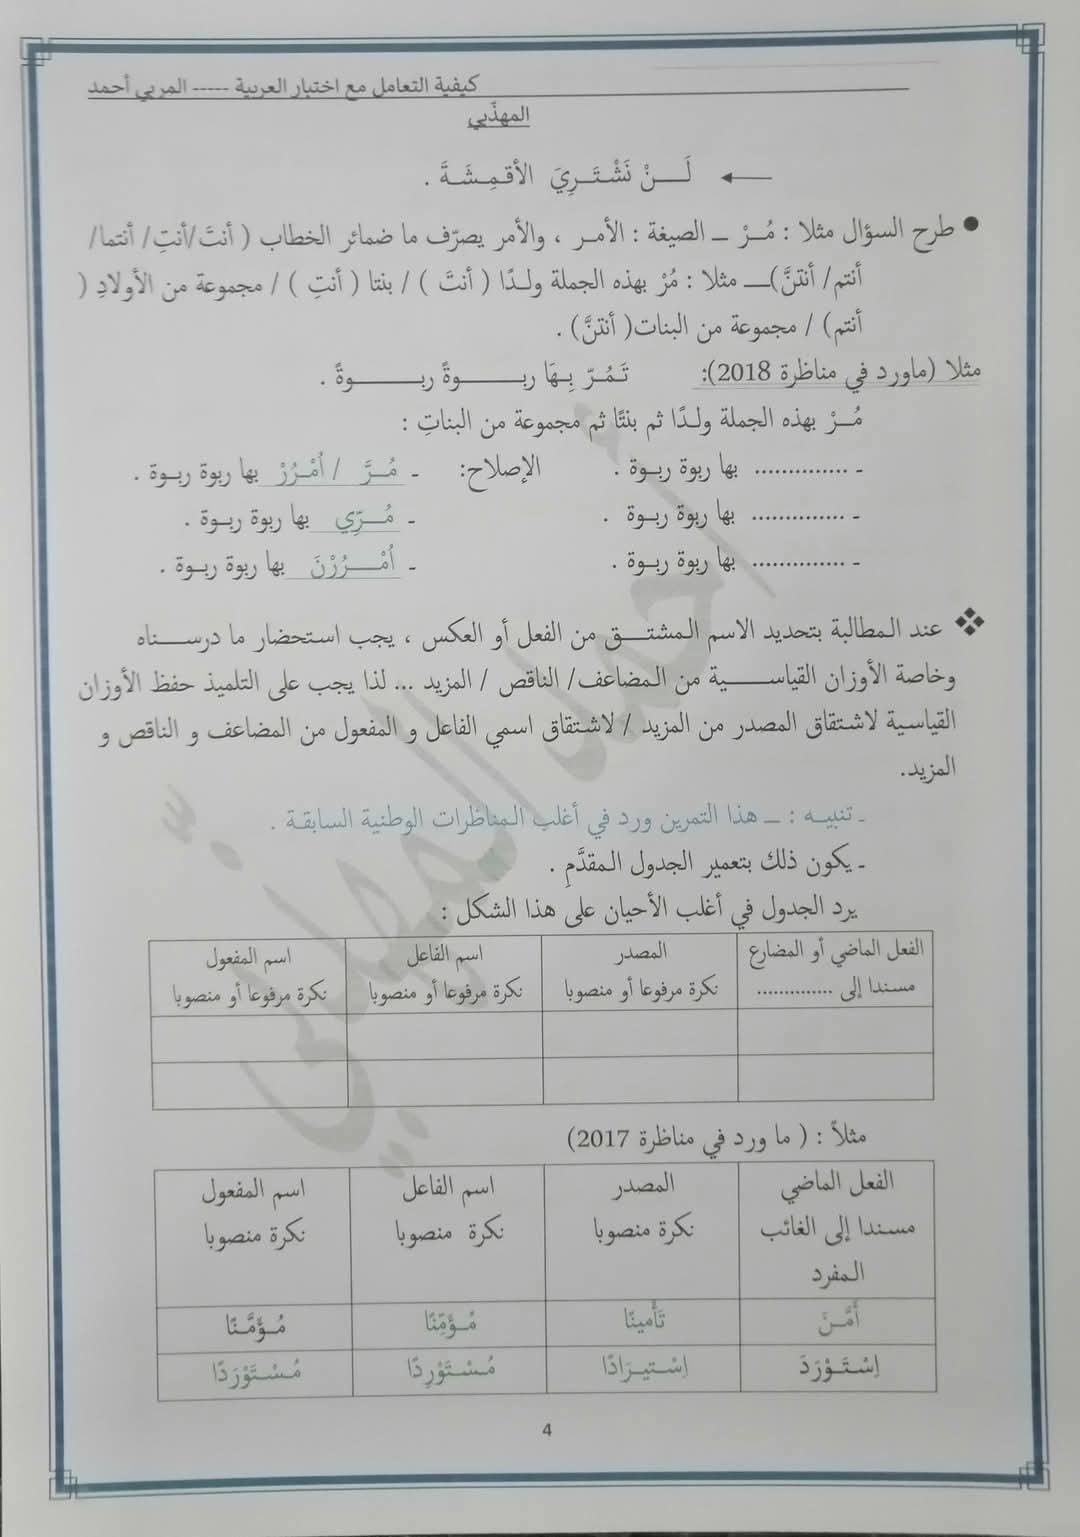 كيفية التعامل مع اختبار العربية ----- المربي أحمد
المهذّبي
لَــــنْ نَشْـتَـرِيَ الأقـمِـشَـةَ .
● طرح السؤال مثلا : مُـرْ ــ الصيغة : الأمـر ، والأمر يصرّف ما ضمائر الخطاب ( أنتَ/أنتِ/ أنتما/
أنتم/ أنتنَّ)ـــ مثلا : مُرْ بهذه الجملة ولـدًا ( أنتَ ) / بنتا ( أنتِ ) / مجموعة من الأولادِ (
أنتم) / مجموعة من البنات( أنتنَّ) .
مثلا (ماورد في مناظرة 2018): تَـمُـرّ بِـهَا ربـــــــوةً ربـــــــوةً .
مُـــرْ بهذه الجملة ولـدًا ثم بنتًا ثم مجموعة من البناتِ :
ـ .............. بها ربوة ربـوة . الإصلاح: ـ مُــرَّ / اُمْـرُرْ بها ربوة ربـوة .
ـ .............. بها ربوة ربـوة . ـ مُــرِّي بها ربوة ربـوة .
ـ .............. بها ربوة ربـوة . ـ اُمْــــرُرْنَ بها ربوة ربـوة .
❖ عند المطالبة بتحديد الاسم المشتـــق من الفعل أو العكس ، يجب استحضار ما درســــناه
وخاصة الأوزان القياســـــية من المضاعف/ الناقص / المزيد ... لذا يجب على التلميذ حفظ الأوزان
القياسية لاشتقاق المصدر من المزيد / لاشتقاق اسمي الفاعل و المفعول من المضاعف و الناقص و
المزيد.
ـ تنبيـه : ــ هذا التمرين ورد في أغلب المناظرات الوطنية السابقـة .
ـ يكون ذلك بتعمير الجدول المقدَّمِ .
يرد الجدول في أغلب الأحيان على هذا الشكل :
الفعل الماضي أو المضارع المصدر اسم الفاعل اسم المفعول
مسندا إلى .............. نكرة مرفوعا أو منصوبا نكرة مرفوعا أو منصوبا نكرة مرفوعا أو منصوبا
مثلاً : ( ما ورد في مناظرة 2017)
الفعل الماضي المصدر اسم الفاعل اسم المفعول
مسندا إلى الغائب نكرة منصوبا نكرة منصوبا نكرة منصوبا
المفرد
أَمَّـنَ تَأْمينًا مُـؤَمِّنًا مُـؤَمَّـنًا
اِسْـتَـوْرَدَ اِسْـتيـرَادًا مُـسْـتَـوْرِدًا مُـسْـتَـوْرَدًا
4
أحمد المهذّبي